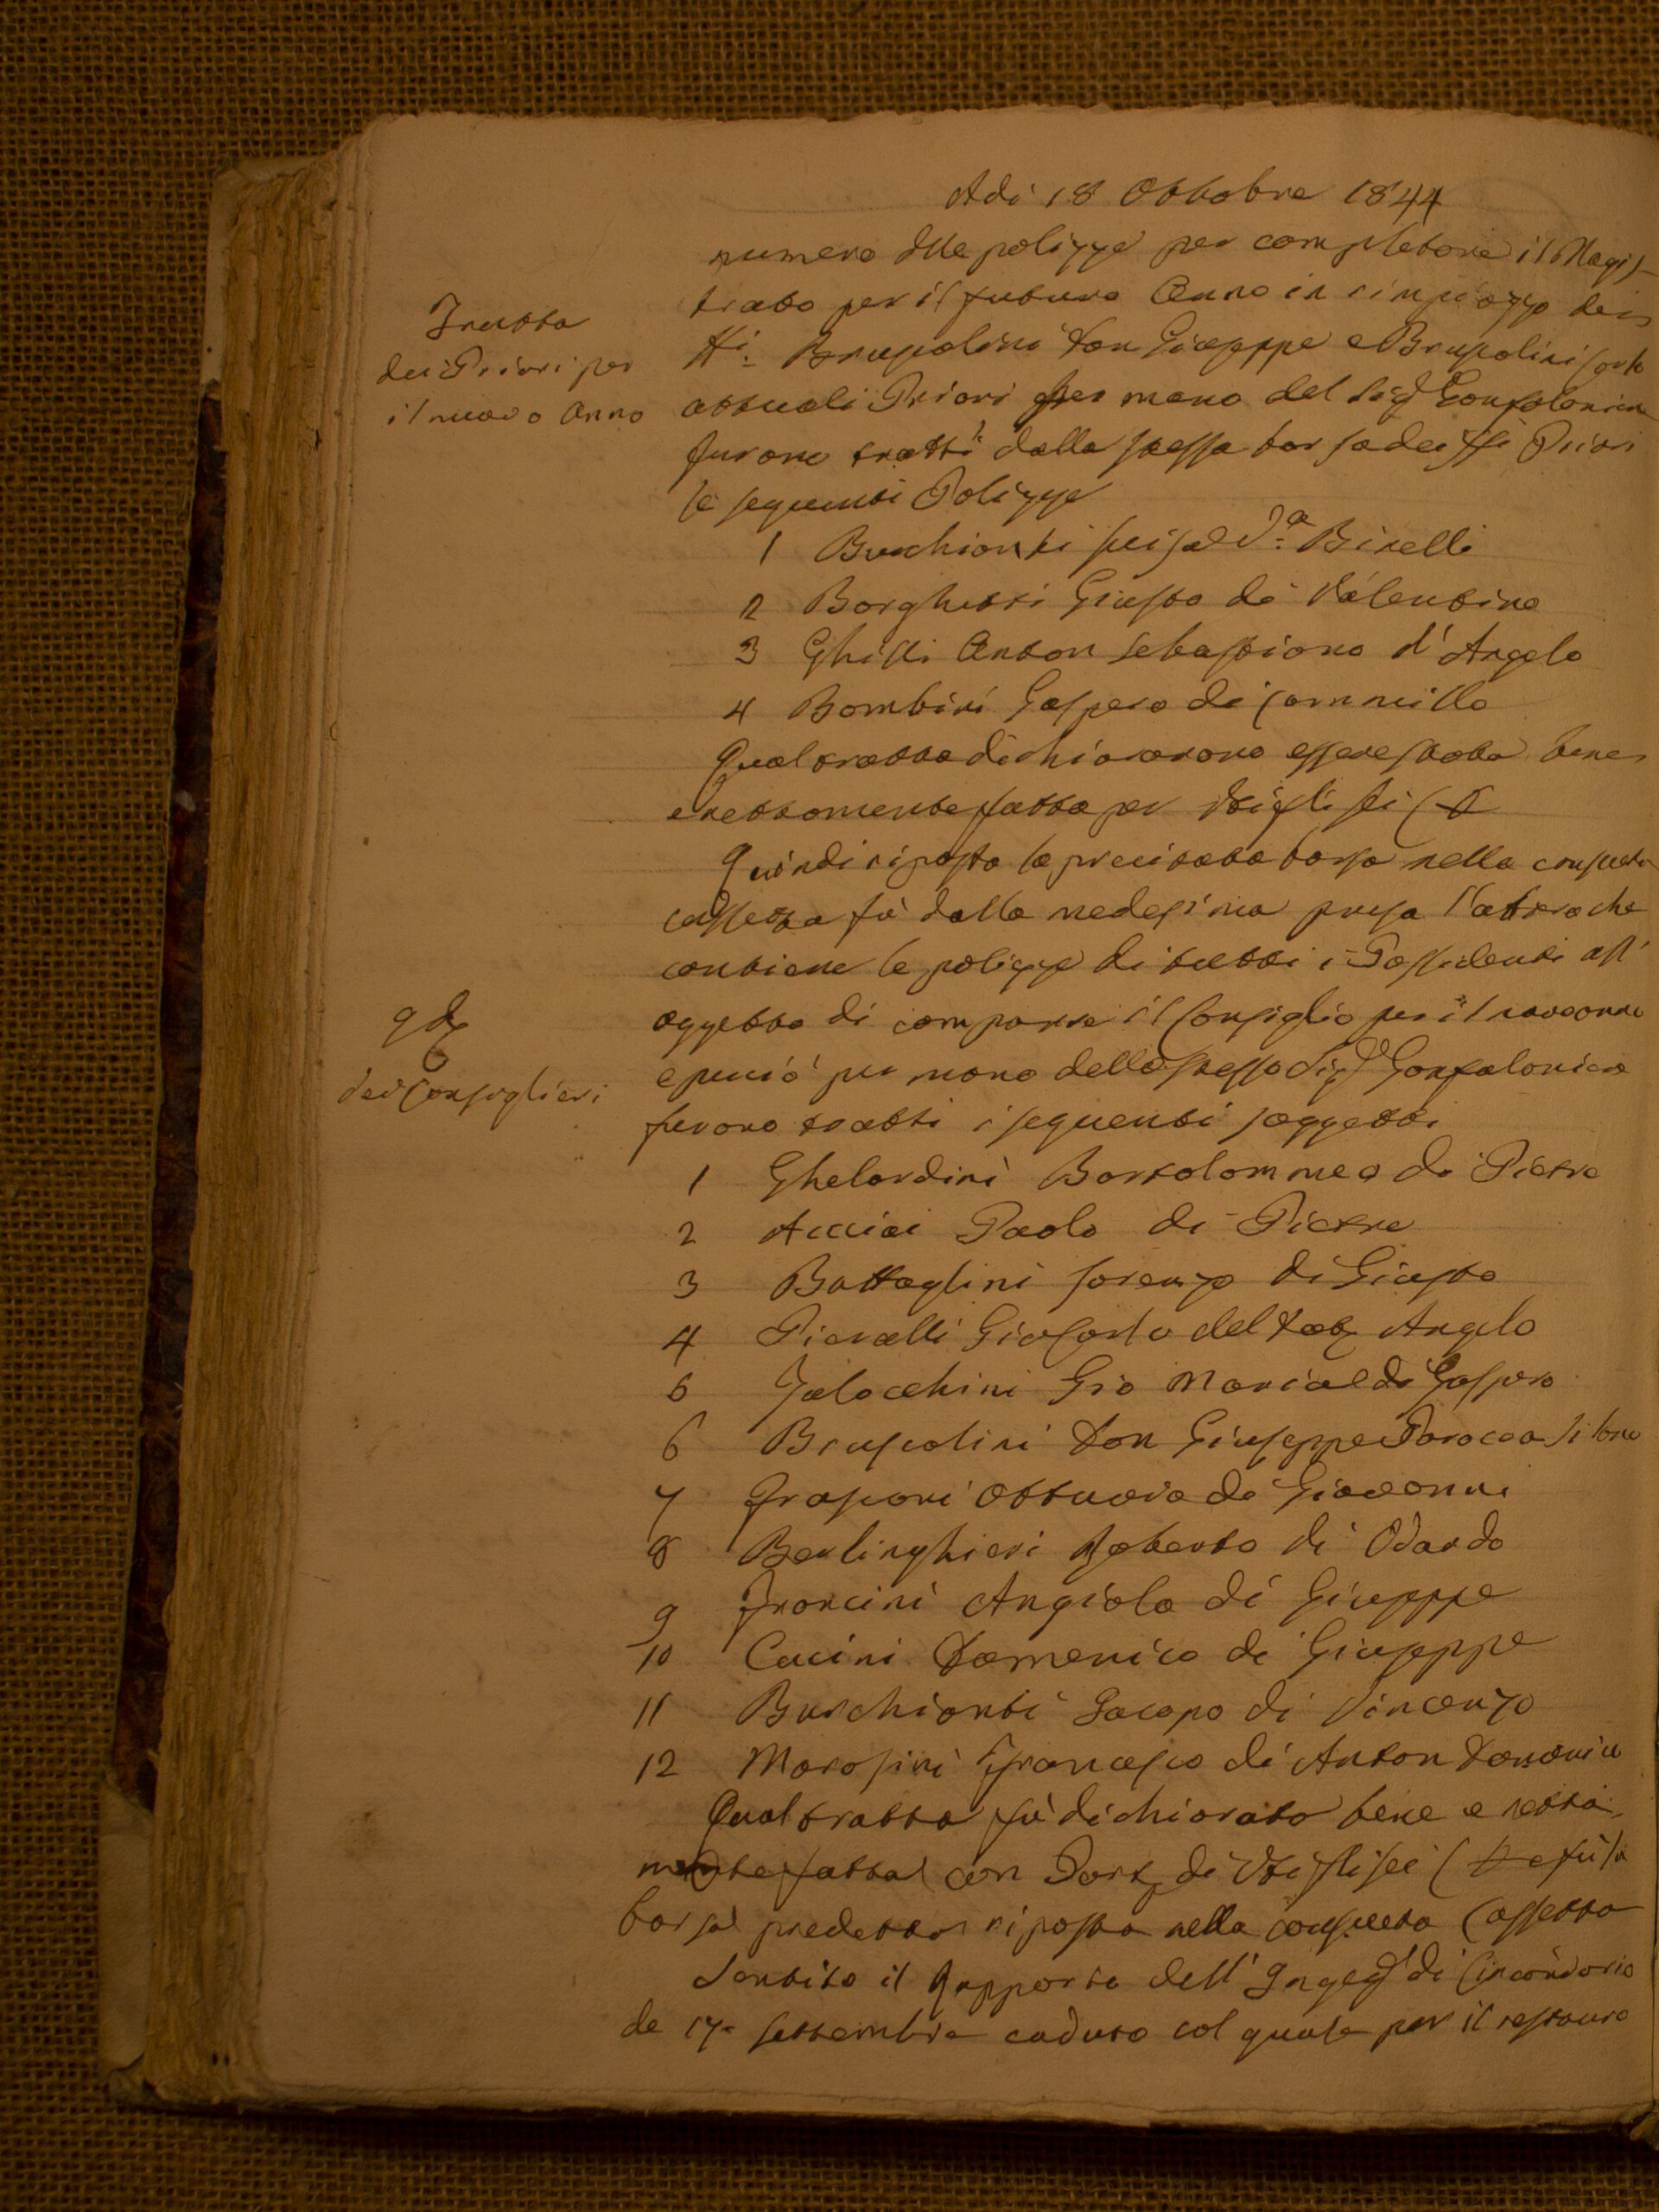 Adi 18 Ottobre 1844
numero delle polizze per completare il Magis-
trato per il futuro Anno in rimpiazzo dei
SS.i Bruscolini Don Giuseppe e Bruscolini Carlo
Tratta
dei Priori per
il nuovo Anno
attuali Priori per mano del Sig.r Gonfaloniere
furono tratti dalla stessa borsa dei SS.i Priori
le seguenti Polizze
1 Burchianti Luisa V.a Binelli
2 Borghetti Giusto di Valentino
3 Ghilli Anton Sebastiano d'Angelo
4 Bombini Gaspero di Cammillo
Qual tratta dichiararono essere stata bene
e rettamente fatta per voti sei
Quindi riposta la precitata borsa nella consueta
cassetta fù dalla medesima presa l'altra che
contiene le polizze di tutti i Possidenti all'
oggetto di comporre il Consiglio per il nuovo anno
e perciò per mano dello stesso Sig.r Gonfaloniere
dei Consiglieri
furono tratti i seguenti soggetti
1 Ghelardini Bortolommeo di Pietro
2 Acciai Paolo di Pietro
3 Battaglini Lorenzo di Giusto
4 Pieralli Gio Carlo del Angelo
5 Talocchini Gio Maria di Gaspero
6 Bruscolini Don Giuseppe Paroco
7 Frasconi Ottavio di Giovanni
8 Berlinghieri Roberto di Odardo
9 Francini Angiolo di Giuseppe
10 Cucini Domenico di Giuseppe
11 Burchianti Jacopo di Vincenzo
12 Morosini Francesco di Anton Domenico
Qual tratta fù dichiarato bene e retta-
mente fatta con Part.o di Voti sei e fù la
borsa predetta riposta nella consueta Cassetta
Sentito il Rapporto dell'Ingeg.r di Circondario
de 17. Settembre caduto col quale per il restauro